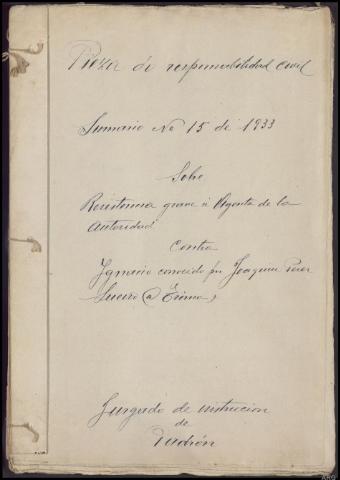 Pieza de responsabilidad civil
Sumario No 15 de 1933
Sobre
Resistencia grave a Agente de la
Autoridad
Contra
Ygnacio conocido por Joaquin Perez
(a)
Juzgado de instruccion
de
Padrón